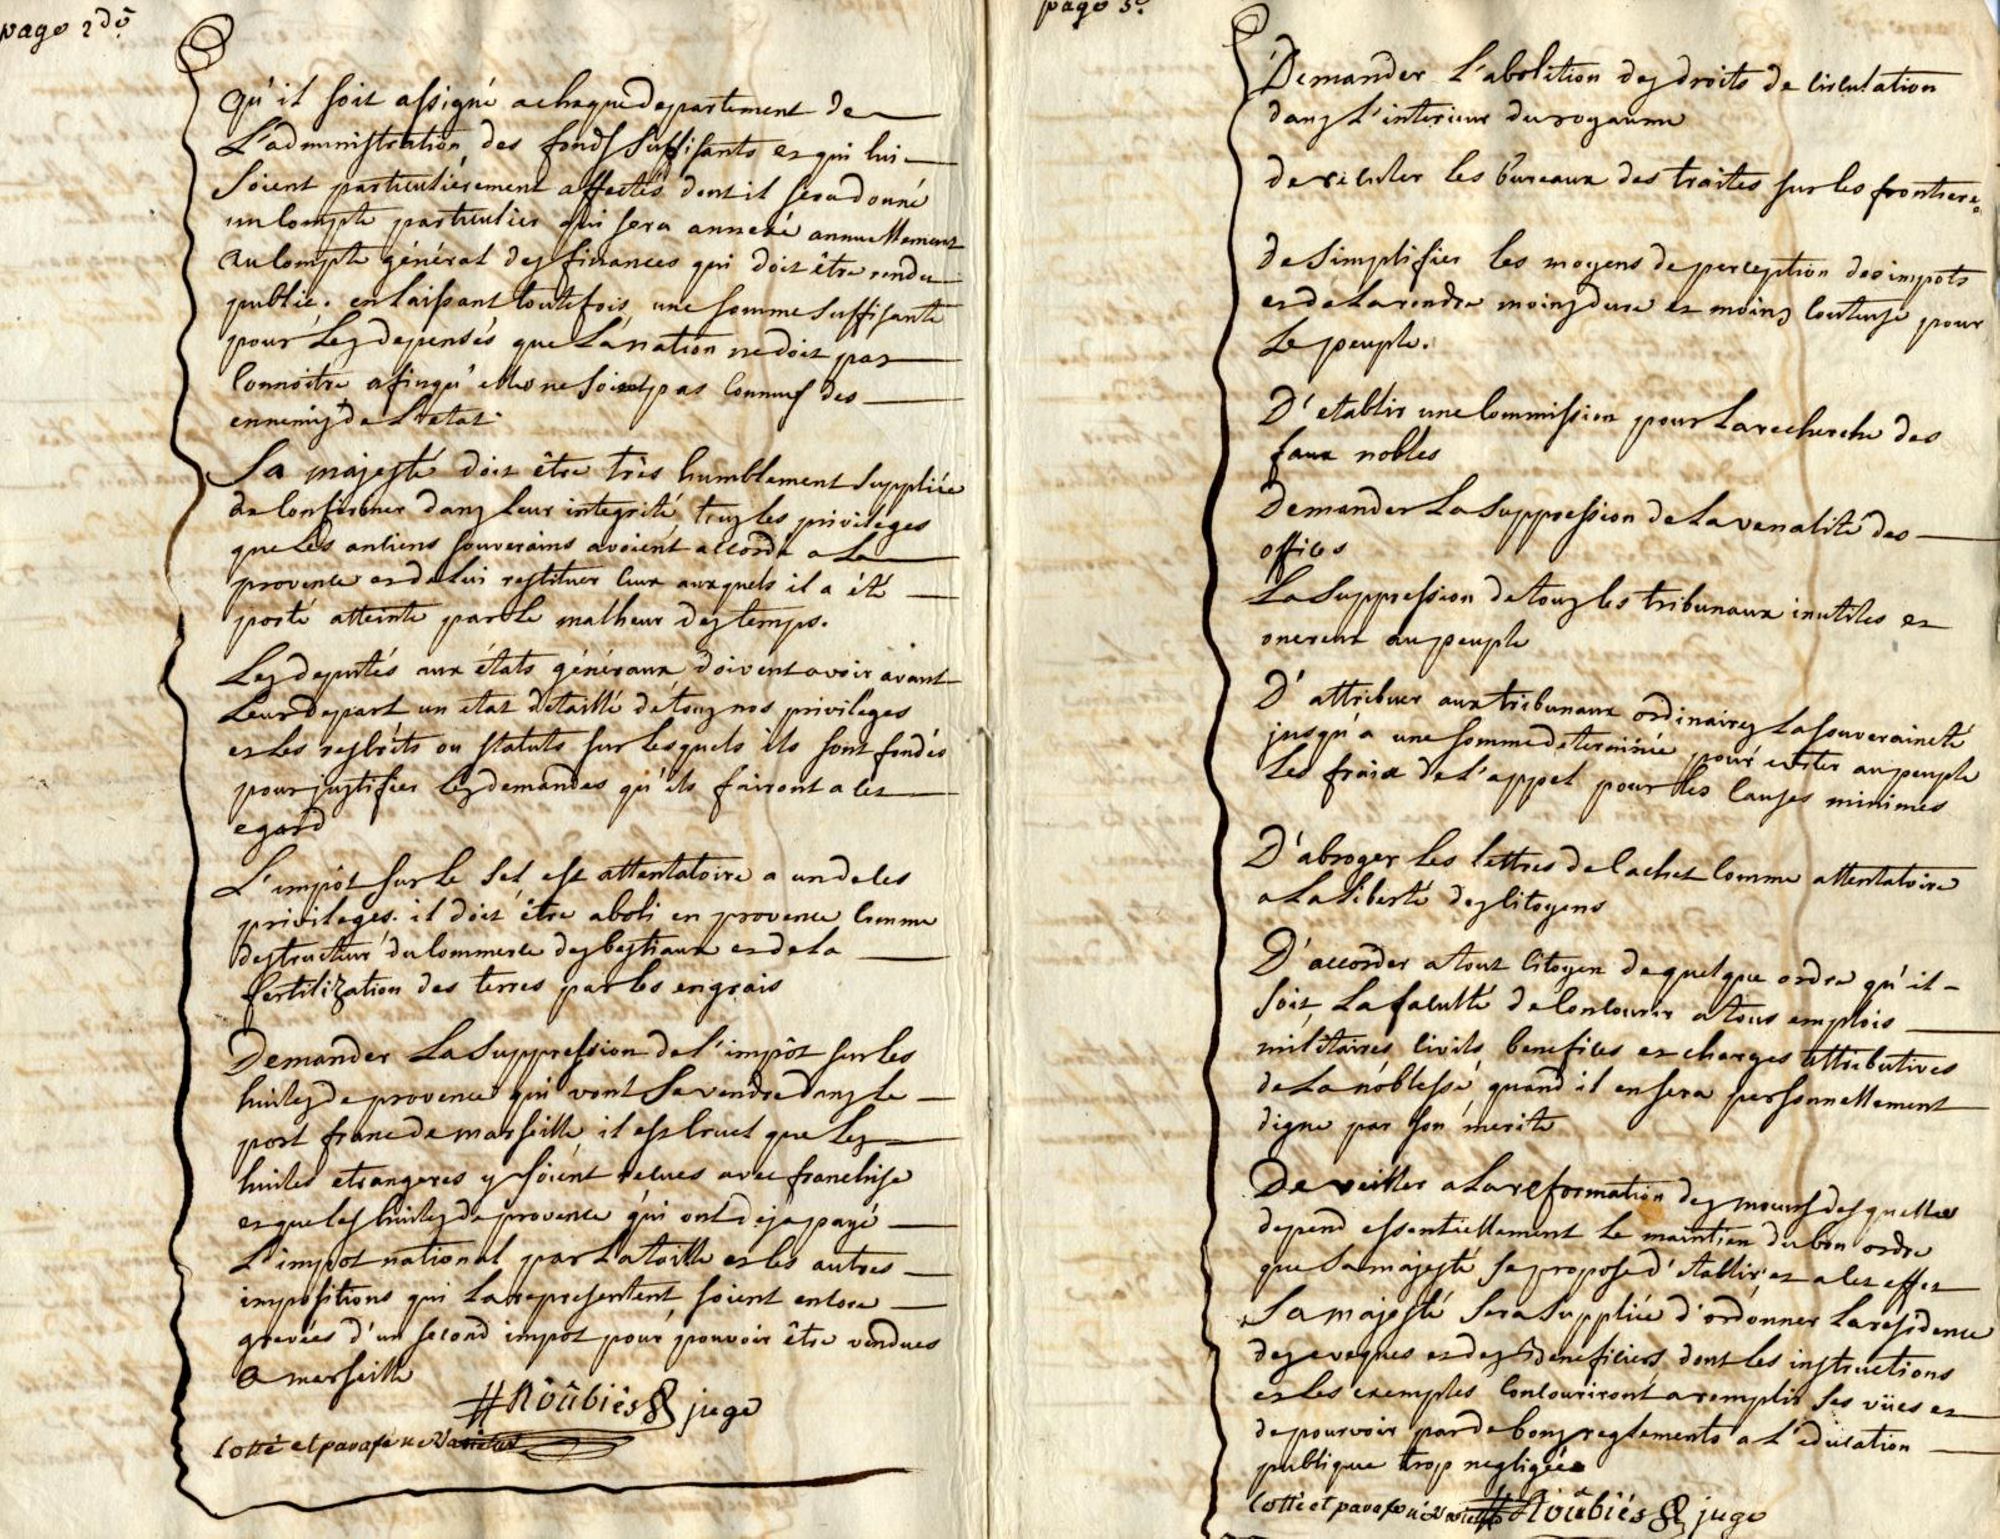 page 2de
qu'il soit assigné a chaque departement de
L'administration des fonds suffisants et qui lui
soient particulièrement affectés dont il sera donné
un compte particulier qui sera annexé annuellement
au compte général des finances qui doit être rendu
public. en laissant toutefois une somme suffisante
pour Les depenses que La nation ne doit pas
connoitre afin qu'elles ne soient pas connues des
ennemis de L'etat.
Sa majesté doit être très humblement suppliée
de confirmer dans leur integrité tous les privileges
que Les anciens souverains avoient accordé a La
provence et de Lui restituer ceux auxquels il a été
porté atteinte par Le malheur des temps.
Les deputés aux états généraux doivent avoir avant
Leur depart un etat détaillé de tous nos privileges
et Les rescrits ou statuts sur Lesquels ils sont fondés
pour justifier Les demandes qu'ils fairont a cet
egard
L'impôt sur Le sel est attentatoire a un de ces
privileges. il doit être aboli en provence comme
destructeur du commerce des bestiaux et de La
fertilization des terres par Les engrais
Demander La suppression de L'impôt sur Les
huiles de provence qui vont se vendre dans Le
port franc de marseille, il est cruel que Les
huiles etrangeres y soient recues avec franchise
et que Les huiles de provence qui ont deja payé
L'impot national par La taille et Les autres
impositions qui La representent, soient encore
grevées d'un second impot pour pouvoir être vendues
a marseille
Roûbiès juge
Cotté et parafé ne varietur
page 3e
Demander L'abolition des droits de circulation
dans L'interieur du royaume
de reculer les bureaux des traites sur les frontieres
de simplifier les moyens de perception des impots
et de La rendre moins dure et moins couteuse pour
Le peuple.
D'etablir une commission pour La recherche des
faux nobles
Demander La suppression de La venalité des
offices
La suppression de tous les tribunaux inutiles et
onereux au peuple
D'attribuer aux tribunaux ordinaires La souveraineté
jusqu'a une somme determinée pour eviter au peuple
Les fraix de L'appel pour Les causes minimes
D'abroger Les lettres de cachet comme attentatoire
a La Liberté des Citoyens
D'accorder a tout Citoyen de quelque ordre qu'il
soit, La faculté de concourir a tous emplois
militaires civils benefices et charges attributives
de La noblesse, quand il en sera personnellement
digne par son merite
De veiller a La reformation des moeurs desquelles
depend essentiellement Le maintien du bon ordre
que Sa majesté se propose d'etablir et a cet effet
Sa majesté sera suppliée d'ordonner La residence
des eveques et des beneficiers, dont Les instructions
et Les exemples concouriront a remplir ses vües et
de pourvoir par de bons reglements a L'education
publique trop negligée
Cotté et parafé ne varietur Roûbiès juge